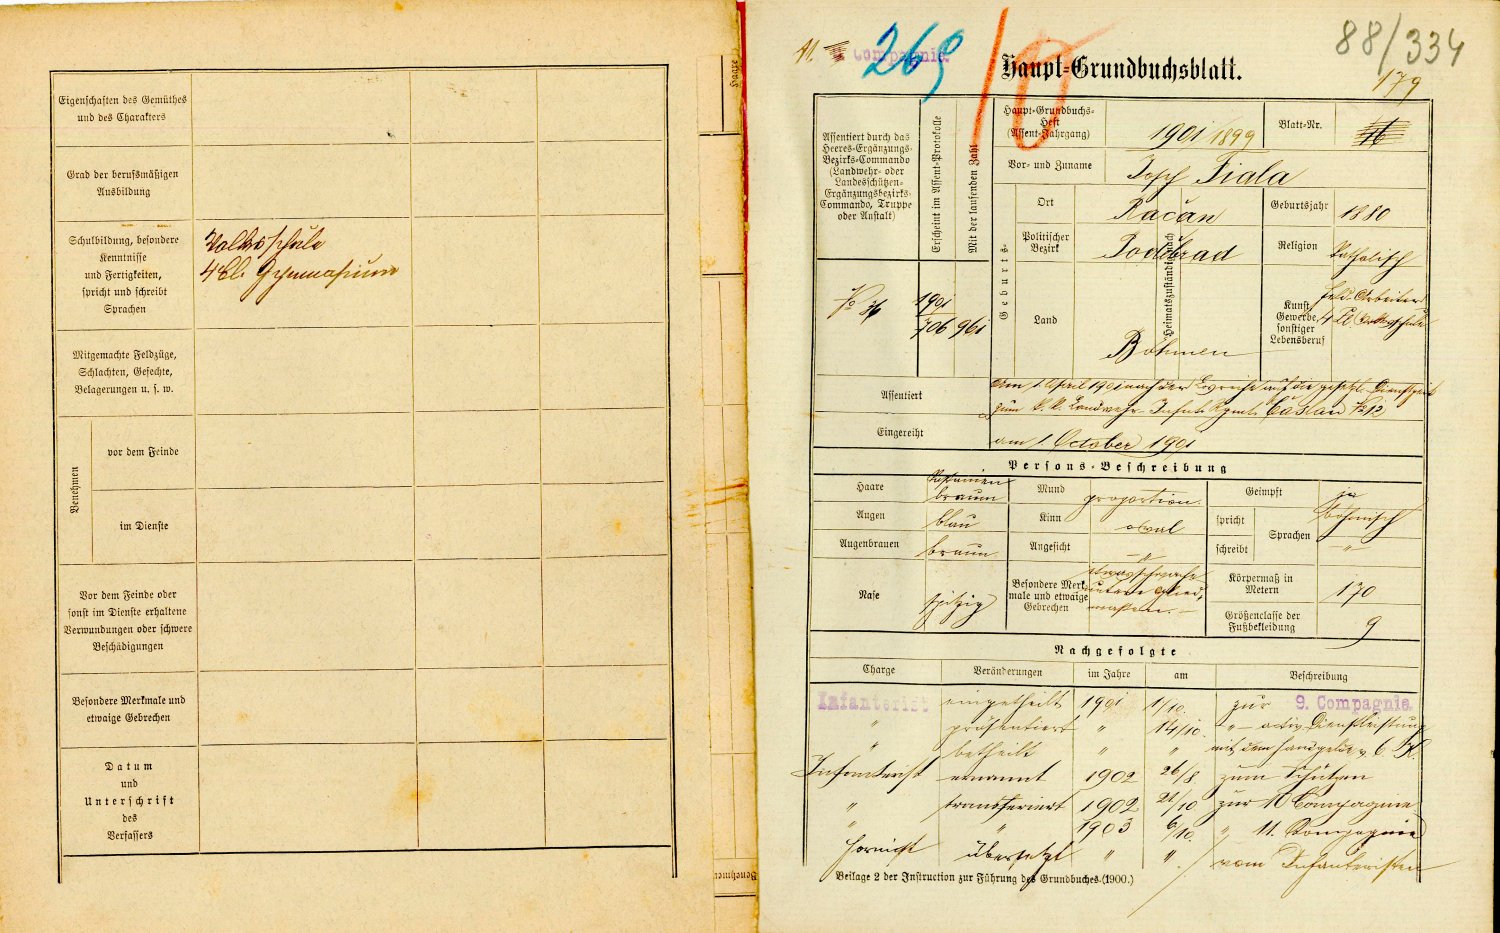 Eigenschaften des Gemüthes
und des Charakters
Grad der berufsmäßigen
Ausbildung
Schulbildung, besondere
Kenntnisse
und Fertigkeiten,
spricht und schreibt
Sprachen
Volksschule
4 Kl. Gymnasium
Mitgemachte Feldzüge,
Schlachten, Gefechte,
Belagerungen u. s. w.
Benehmen
vor dem Feinde
im Dienste
Vor dem Feinde oder
sonst im Dienste erhaltene
Verwundungen oder schwere
Beschädigungen
Besondere Merkmale und
etwaige Gebrechen
Datum
und
Unterschrift
des
Verfassers
Benehmen
11. Compagnie.
269
10
88/334
179
Haupt-Grundbuchsblatt.
Assentiert durch das
Heeres-Ergänzungs-
Bezirks-Commando
(Landwehr- oder
Landesschützen-
Ergänzungsbezirks-
Commando, Truppe
oder Anstalt)
Erscheint im Assent-Protokolle
Mit der laufenden Zahl
No 36
1901
706
961
Haupt-Grundbuchs-
Heft
(Assent-Jahrgang)
1901/1899
Blatt-Nr.
16
Vor- und Zuname
Josef Fiala
Geburts-
Heimatszuständig nach
Ort
Račan
Geburtsjahr
1880
Politischer
Bezirk
Poděbrad
Religion
katholisch
Land
Böhmen
Kunst,
Gewerbe,
sonstiger
Lebensberuf
Feld-Arbeiter
4 Kl. Volksschule
Assentiert
Am 1. April 1901 nach der Losreihe auf die gesetzl. Dienstzeit
zum k. k. Landwehr-Infant. Rgmt. Časlau No 12
Eingereiht
am 1. October 1901
Persons-Beschreibung
Haare
braun
Mund
proportion.
Geimpft
ja
Augen
blau
Kinn
oval
spricht
Sprachen
böhmisch
Augenbrauen
braun
Angesicht
"
schreibt
"
Nase
spitzig
Besondere Merk-
male und etwaige
Gebrechen
etwas schwache
untere Glied-
massen.
Körpermaß in
Metern
170
Größenclasse der
Fußbekleidung
9
Nachgefolgte
Charge Veränderungen im Jahre am Beschreibung
Infanterist eingetheilt 1901 1/10. zur 9. Compagnie.
" präsentiert " 14/10. " activ. Dienstleistung
" betheilt " " mit dem Handgelde v. 6 K.
Infanterist ernannt 1902 26/8 zum Schützen
" transferiert 1902 21/10 zur 10 Compagnie
" " 1903 6/10. " 11. Compagnie
Hornist übersetzt " " vom Infanteristen
Beilage 2 der Instruction zur Führung des Grundbuches. (1900.)